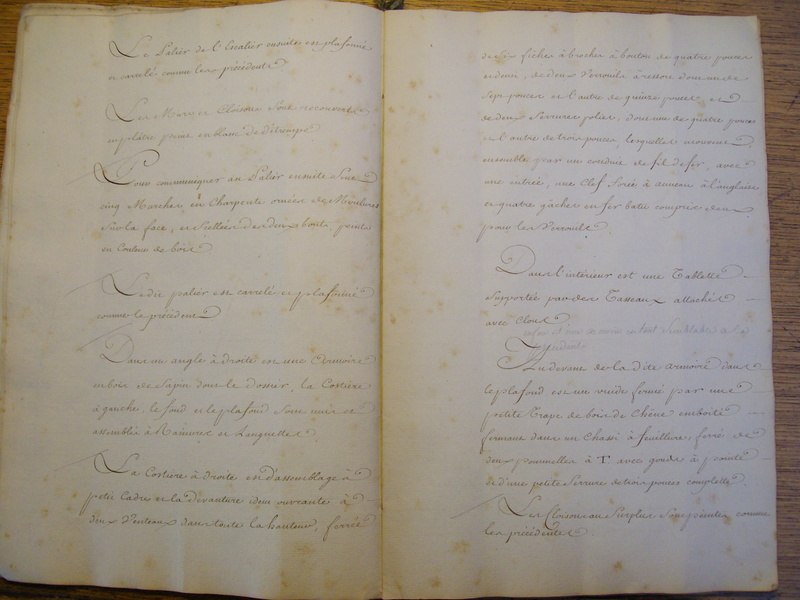 Le Palier de l'Escalier ensuite est plafonné
et carrelé comme les précédents
Les Murs et Cloisons Sont recouverts
en plâtre peint en blanc de détrempe
Pour communiquer au Palier ensuite Sont
cinq Marches en Charpente ornées de Moulures
Sur la face, et Scellées des deux bouts peintes
en Couleur de bois
Le dit palier est carrelé et plafonné
comme le précédent
Dans un angle à droite est une Armoire
en bois de Sapin dont le dossier, la Costière
à gauche, le fond et le plafond Sont unis et
assemblés à Rainures et Languettes
La Costière à droite est d'assemblage à
petit Cadre et la devanture idem ouvrante à
deux Venteaux dans toute la hauteur, ferrée
de Six fiches à broches à bouton de quatre pouces
et demi, de deux Verrouils à ressort dont un de
Sept pouces et l'autre de quinze pouces et
de deux Serrures polies, dont une de quatre pouces
et l'autre de trois pouces, lesquelles ouvrent
ensemble par un conduit de fil de fer, avec
une entrée, une Clef forée à anneau à l'anglaise
et quatre gâches en fer batu compris deux
pour les Verrouils
Dans l'intérieur est une Tablette
Supportée par des Tasseaux attachés
avec Clous
est une armoire en tout Semblable a la
précédente
Au devant de la dite armoire dans
le plafond est un vuide fermé par une
petite Trape de bois de Chêne emboité
fermant dans un Chassi à feuillure, ferré de
deux pommelles à T. avec gonds à pointe
et d'une petite Serrure de trois pouces complette
Les Cloisons au Surplus Sont peintes comme
les précédentes